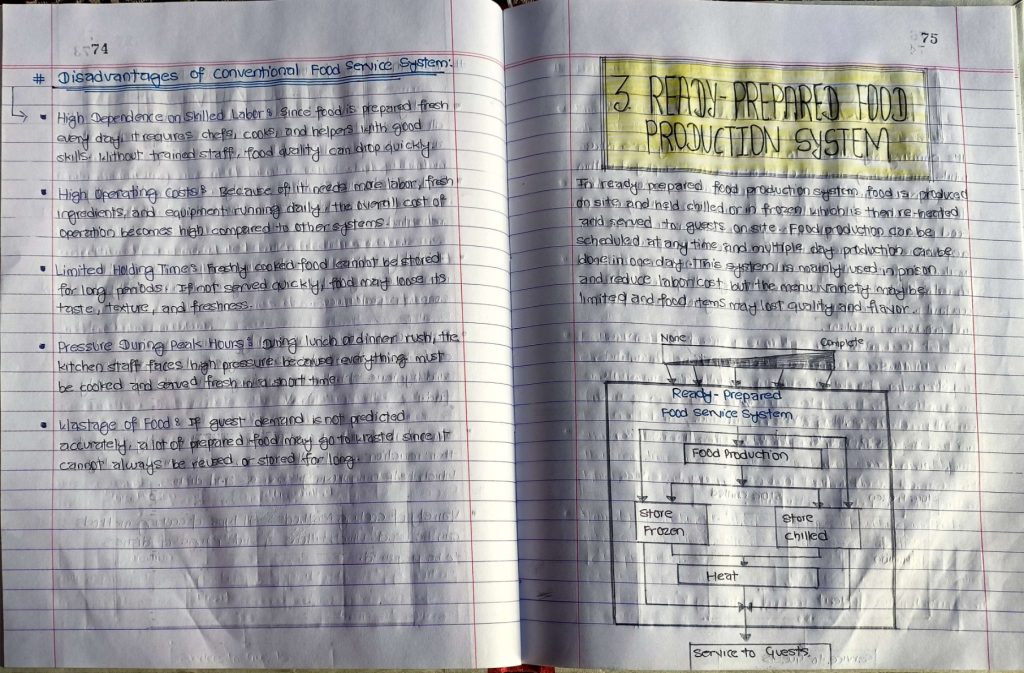 74
# Disadvantages of Conventional Food Service System:
• High Dependence on Skilled Labor: Since food is prepared fresh
every day, it requires chefs, cooks, and helpers with good
skills. Without trained staff, food quality can drop quickly.
• High Operating Costs: Because of it needs more labor, fresh
ingredients, and equipment running daily, the overall cost of
operation becomes high compared to other systems.
• Limited Holding Time: Freshly cooked food cannot be stored
for long periods. If not served quickly, food may loose its
taste, texture, and freshness.
• Pressure During Peak Hours: During lunch or dinner rush, the
kitchen staff faces high pressure because everything must
be cooked and served fresh in a short time.
• Wastage of Food: If guest demand is not predicted
accurately, a lot of prepared food may go to waste since it
cannot always be reused or stored for long.
75
3. READY-PREPARED FOOD
PRODUCTION SYSTEM
In ready prepared food production system, food is produced
on site and held chilled or in frozen which is then re-heated
and served to guests on site. Food production can be
scheduled at any time and multiple day production can be
done in one day. This system is mainly used in prison
and reduce labor cost but the menu variety may be
limited and food items may lost quality and flavor.
None Complete
Ready-Prepared
Food Service System
Food Production
Store Store
Frozen Chilled
Heat
Service to Guests.